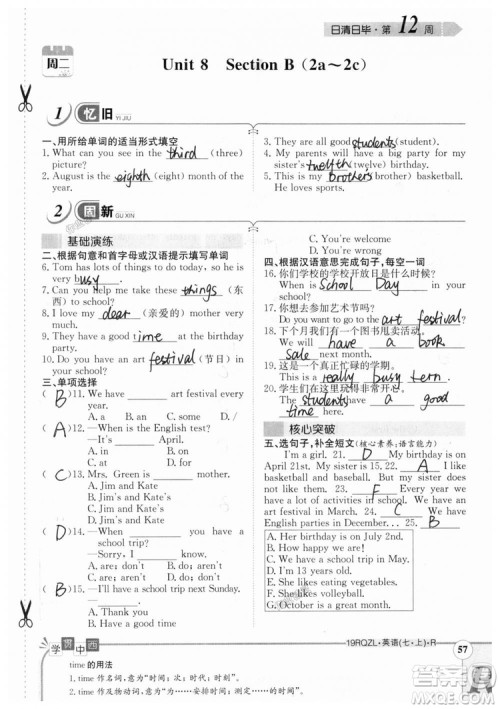 日清日毕·第12周
周二
Unit 8 Section B (2a～2c)
1 忆旧 YI JIU
一、用所给单词的适当形式填空
1. What can you see in the third (three) picture?
2. August is the eighth (eight) month of a year.
3. They are all good students (student).
4. My parents will have a big party for my sister's twelfth (twelve) birthday.
5. This is my brother's (brother) basketball. He likes sports.
2 固新 GU XIN
基础演练
二、根据句意和首字母或汉语提示填写单词
6. Tom has lots of things to do today, so he is very busy.
7. Can you help me take these things (东西) to school?
8. I love my dear (亲爱的) mother very much.
9. They have a good time at the birthday party.
10. Do you have an art festival (节日) in your school?
三、单项选择
( B )11. We have ____ art festival every year.
A. a B. an C. the D. /
( A )12. —When is the English test?
—It's ____ April.
A. in B. on C. at D. of
( C )13. Mrs. Green is ____ mother.
A. Jim and Kate
B. Jim's and Kate's
C. Jim and Kate's
D. Jim's and Kate
( D )14. —When ____ you have a school trip?
—Sorry, we ____ have a school trip.
A. are; don't B. do; aren't
C. are; aren't D. do; don't
( B )15. —I have a school trip next Sunday.
—____!
A. Thank you
B. Have a good time
C. You are right
D. You're welcome
四、根据汉语意思完成句子,每空一词
16. 你们学校的开放日是什么时候?
When is School Day in your school?
17. 你想去参加艺术节吗?
Do you want to go to the art festival?
18. 下个月我们将有一个图书甩卖活动。
We will have a book sale next month.
19. 这是一个真正忙碌的学期。
This is a really busy term.
20. 学生们在这里玩得很开心。
The students have a good time here.
核心突破
五、选句子,补全短文(核心素养:语言能力)
I'm a girl. 21. D My birthday is on April 21st. My sister is 15. 22. A She likes basketball and baseball. My sister does not like math. 23. F Every year we have a lot of activities in school. We have an art festival in March. 24. C And we have English parties in December... 25. B
A. Her birthday is on July 2nd.
B. How interesting they are!
C. We have a school trip in May.
D. I am 12.
E. She likes eating vegetables.
F. She likes English.
G. October is the second month.
学贯中西
time 的用法
1. time 作名词,意为“时间;次;时代;时刻”。
2. time 作及物动词,意为“为……安排时间;测定……的时间”。
19RQZL·英语(七·上)·R
57